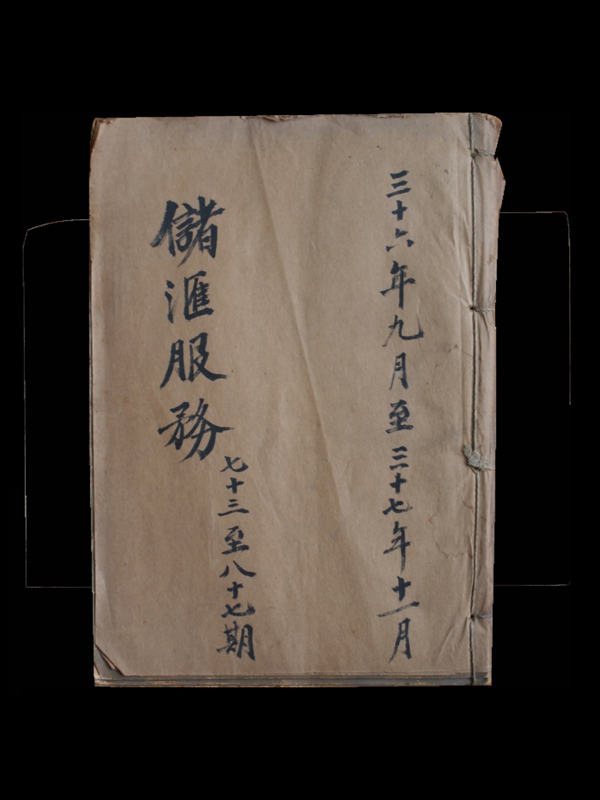 三十六年九月至三十七年十一月
儲滙服務
七十三至八十七期